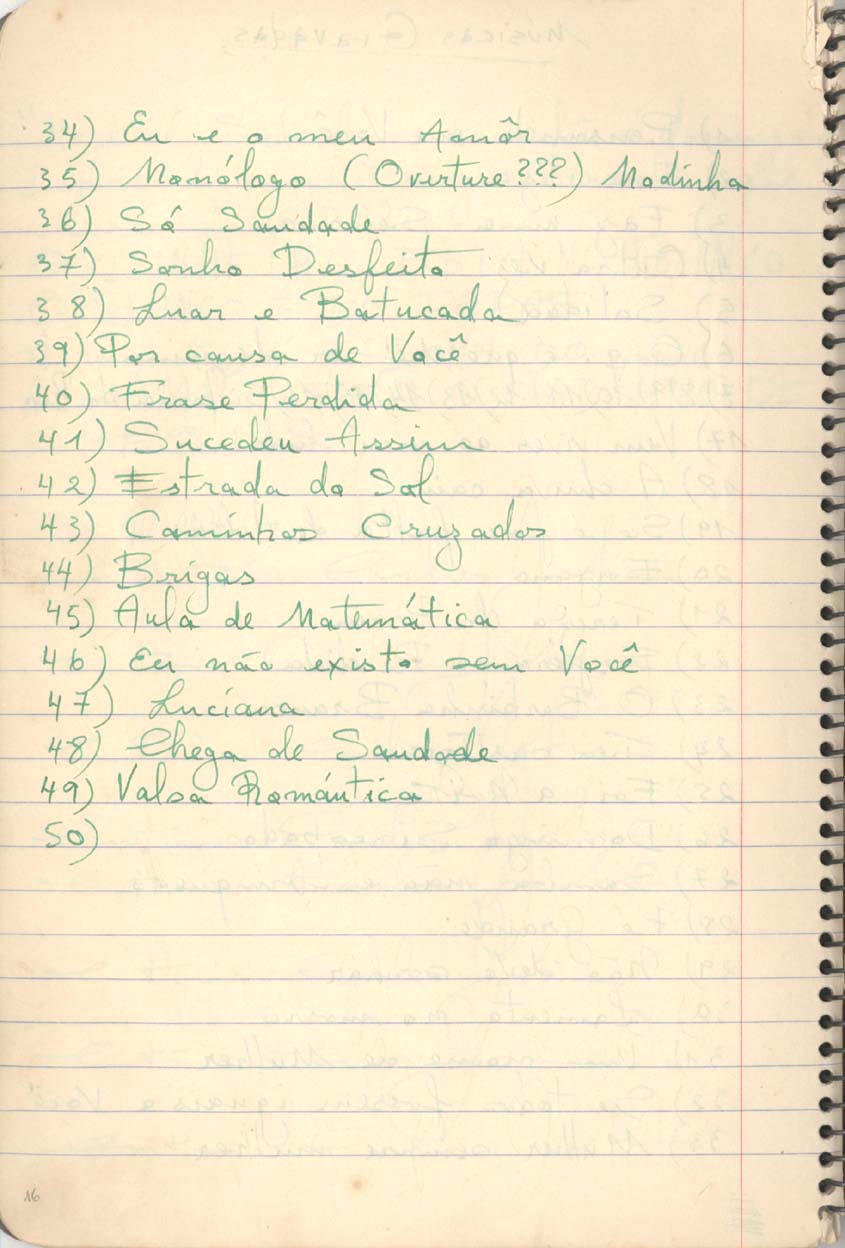 34) Eu e o meu Amôr
35) Monólogo (Overture???) Modinha
36) Só Saudade
37) Sonho Desfeito
38) Luar e Batucada
39) Por causa de Você
40) Frase Perdida
41) Sucedeu Assim
42) Estrada do Sol
43) Caminhos Cruzados
44) Brigas
45) Aula de Matemática
46) Eu não existo sem Você
47) Luciana
48) Chega de Saudade
49) Valsa Romántica
50)
16